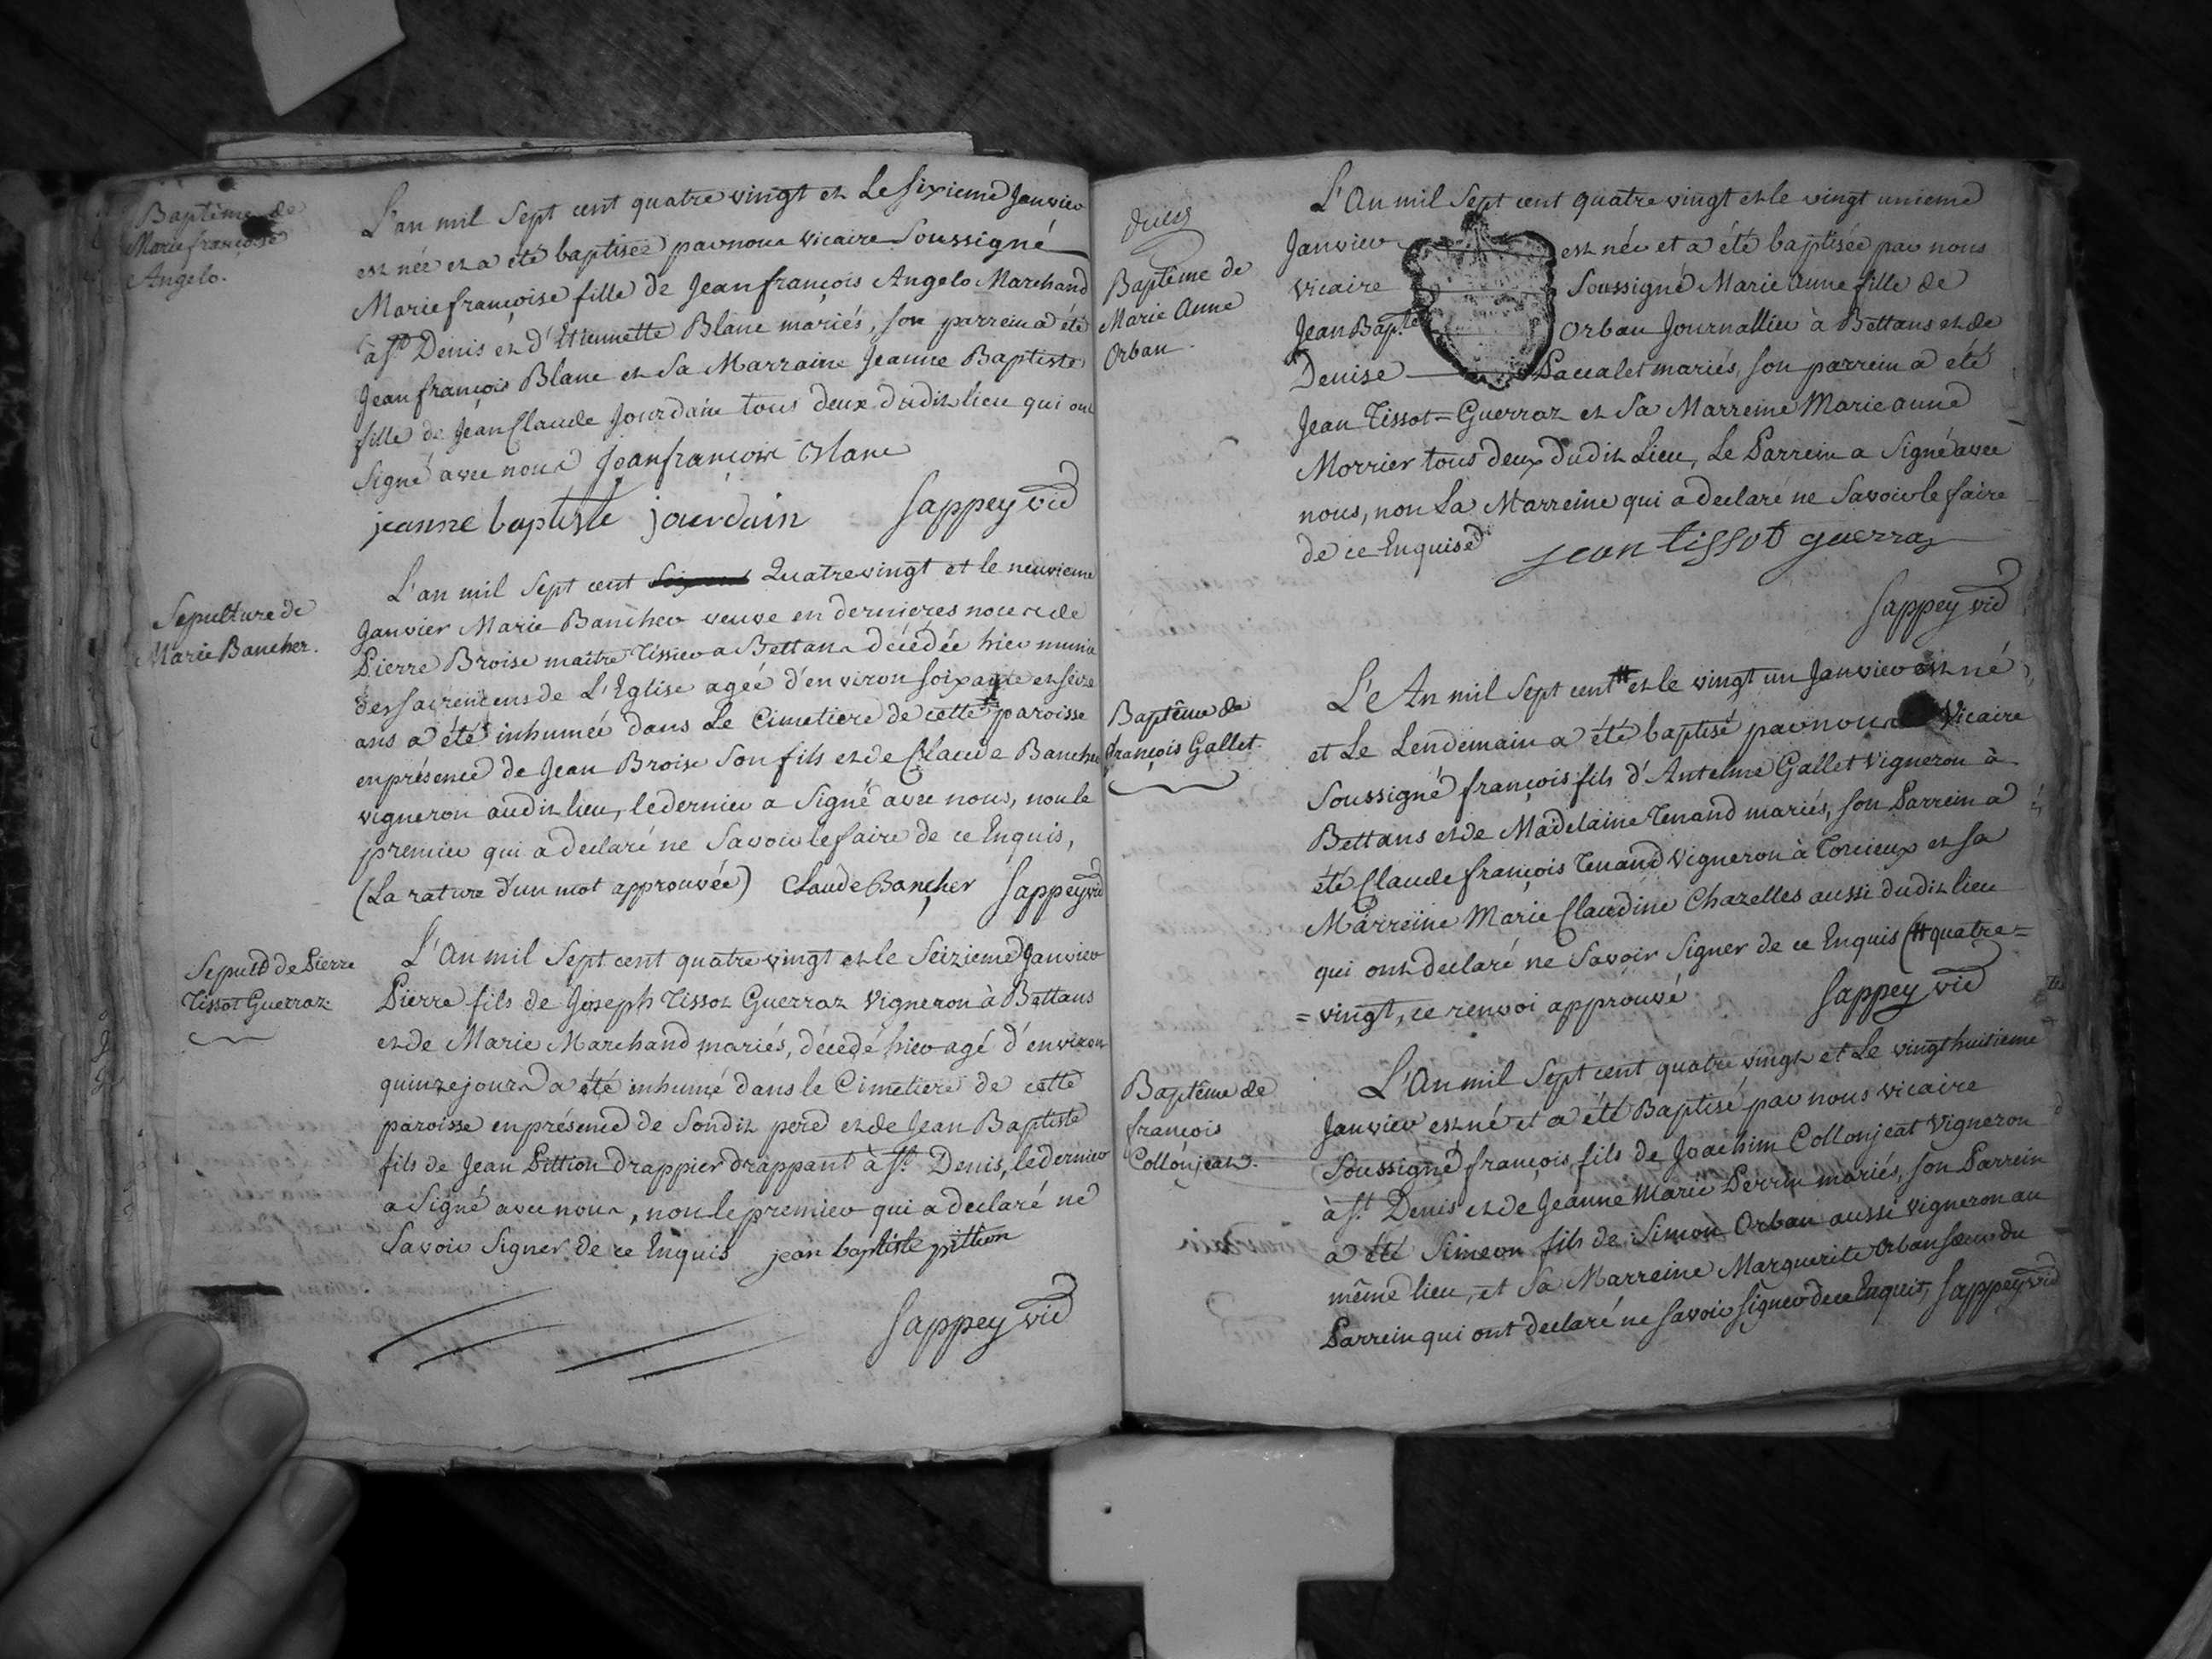 Baptême de
Marie françoise
Angelo.
L'an mil Sept cent quatre vingt et Le Sixieme Janvier
est née et a été baptisée par nous vicaire Soussigné
Marie françoise fille de Jean françois Angelo Marchand
à St Denis et d'Etiennette Blanc mariés, son parrein a été
Jean françois Blanc et Sa Marraine Jeanne Baptiste
fille de Jean Claude Jourdain tous deux dudit lieu qui ont
Signé avec nous Jeanfrancois Blanc
jeanne baptiste jourdain Sappey vic
Sepulture de
Marie Bancher.
L'an mil Sept cent Quatrevingt et le neuvieme
Janvier Marie Bancher veuve en dernieres noces de
Pierre Broise maitre Tissier a Bettans décédée hier munie
des sacremens de L'Eglise agée d'environ soixante et seize
ans a été inhumée dans Le Cimetiere de cette paroisse
en présence de Jean Broise Son fils et de Claude Bancher
vigneron audit lieu, le dernier a Signé avec nous, non le
premier qui a declaré ne Savoir le faire de ce Enquis,
(La rature d'un mot approuvée) Claude Bancher Sappey vic
Sepult de Pierre
Tissot Guerraz.
L'An mil Sept cent quatre vingt et le Seizieme Janvier
Pierre fils de Joseph Tissot Guerraz Vigneron à Bettans
et de Marie Marchand mariés, décédé hier agé d'environ
quinze jours a été inhumé dans le Cimetiere de cette
paroisse en présence de Sondit pere et de Jean Baptiste
fils de Jean Pittion drappier drappant à St. Denis, le dernier
a Signé avec nous, non le premier qui a declaré ne
Savoir Signer de ce Enquis jean baptiste pittion
Sappey vic
Baptême de
Marie Anne
Orban.
L'An mil Sept cent quatre vingt et le vingt unieme
Janvier est née et a été baptisée par nous
Vicaire Soussigné Marie Anne fille de
Jean Bapte Orban Journallier à Bettans et de
Denise Paccalet mariés, son parrein a été
Jean Tissot=Guerraz et Sa Marreine Marie anne
Morrier tous deux dudit Lieu, Le Parrein a Signé avec
nous, non La Marreine qui a declaré ne Savoir le faire
de ce Enquise jean tissot guerraz
Sappey vic
Baptême de
françois Gallet.
L'e An mil Sept cent # et le vingt un Janvier est né
et Le Lendemain a été baptisé par nous Vicaire
Soussigné françois fils d'Antelme Gallet Vigneron à
Bettans et de Madelaine Tenand mariés, son Parrein a
été Claude françois Tenand Vigneron à Torcieux et sa
Marreine Marie Claudine Chazelles aussi dudit lieu
qui ont declaré ne Savoir Signer de ce Enquis (# quatre=
=vingt, ce renvoi approuvé Sappey vic
Baptême de
françois
Collonjeat.
L'An mil Sept cent quatre vingt et Le vingt huitieme
Janvier est né et a été Baptisé par nous vicaire
Soussigné françois fils de Joachim Collonjeat Vigneron
à St. Denis et de Jeanne Marie Perrin mariés, son Parrein
a été Simeon fils de Simon Orban aussi Vigneron au
même lieu, et Sa Marreine Marguerite Orban Sœur du
Parrein qui ont declaré ne Savoir Signer de ce Enquis, Sappey vic